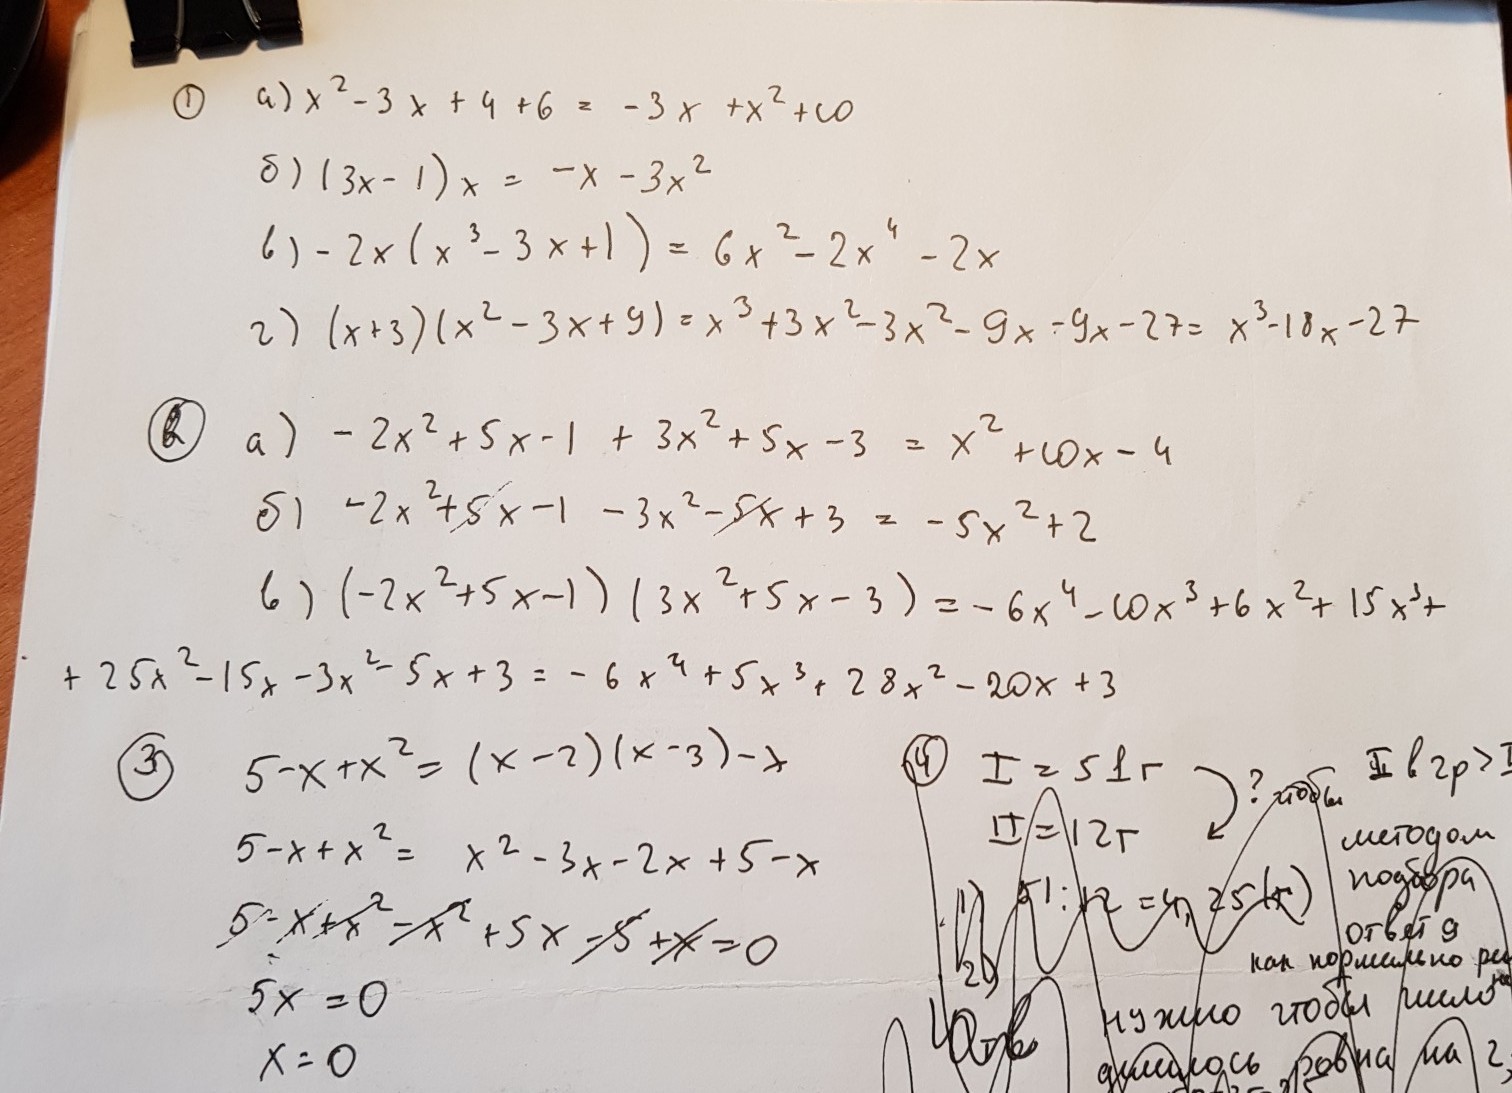 ① а) x² - 3x + 4 + 6 = -3x + x² + 10
б) (3x - 1)x = -x - 3x²
в) -2x(x³ - 3x + 1) = 6x² - 2x⁴ - 2x
г) (x+3)(x² - 3x + 9) = x³ + 3x² - 3x² - 9x - 9x - 27 = x³ - 18x - 27
② а) -2x² + 5x - 1 + 3x² + 5x - 3 = x² + 10x - 4
б) -2x² + 5x - 1 - 3x² - 5x + 3 = -5x² + 2
в) (-2x² + 5x - 1)(3x² + 5x - 3) = -6x⁴ - 10x³ + 6x² + 15x³ +
+ 25x² - 15x - 3x² - 5x + 3 = -6x⁴ + 5x³ + 28x² - 20x + 3
③ 5 - x + x² = (x - 2)(x - 3) - x
5 - x + x² = x² - 3x - 2x + 5 - x
5 - x + x² - x² + 5x - 5 + x = 0
5x = 0
x = 0
④ I = 51г ? чтобы II в 2р > I
II = 12г
методом
подбора
1) 51 : 12 = 4,25(г)
ответ 9
2)
как нормально
нужно чтобы число
делилось ровна на 2,